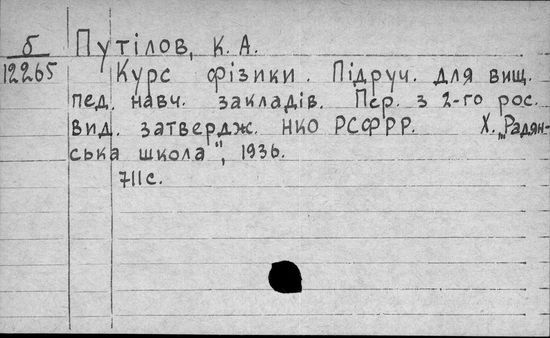 б Путілов, К. А.
12265 Курс фізики. Підруч. для вищ.
пед. навч. закладів. Пер. з 2-го рос.
вид. затвердж. НКО РСФРР. Х. „Радян-
ська школа", 1936.
711с.